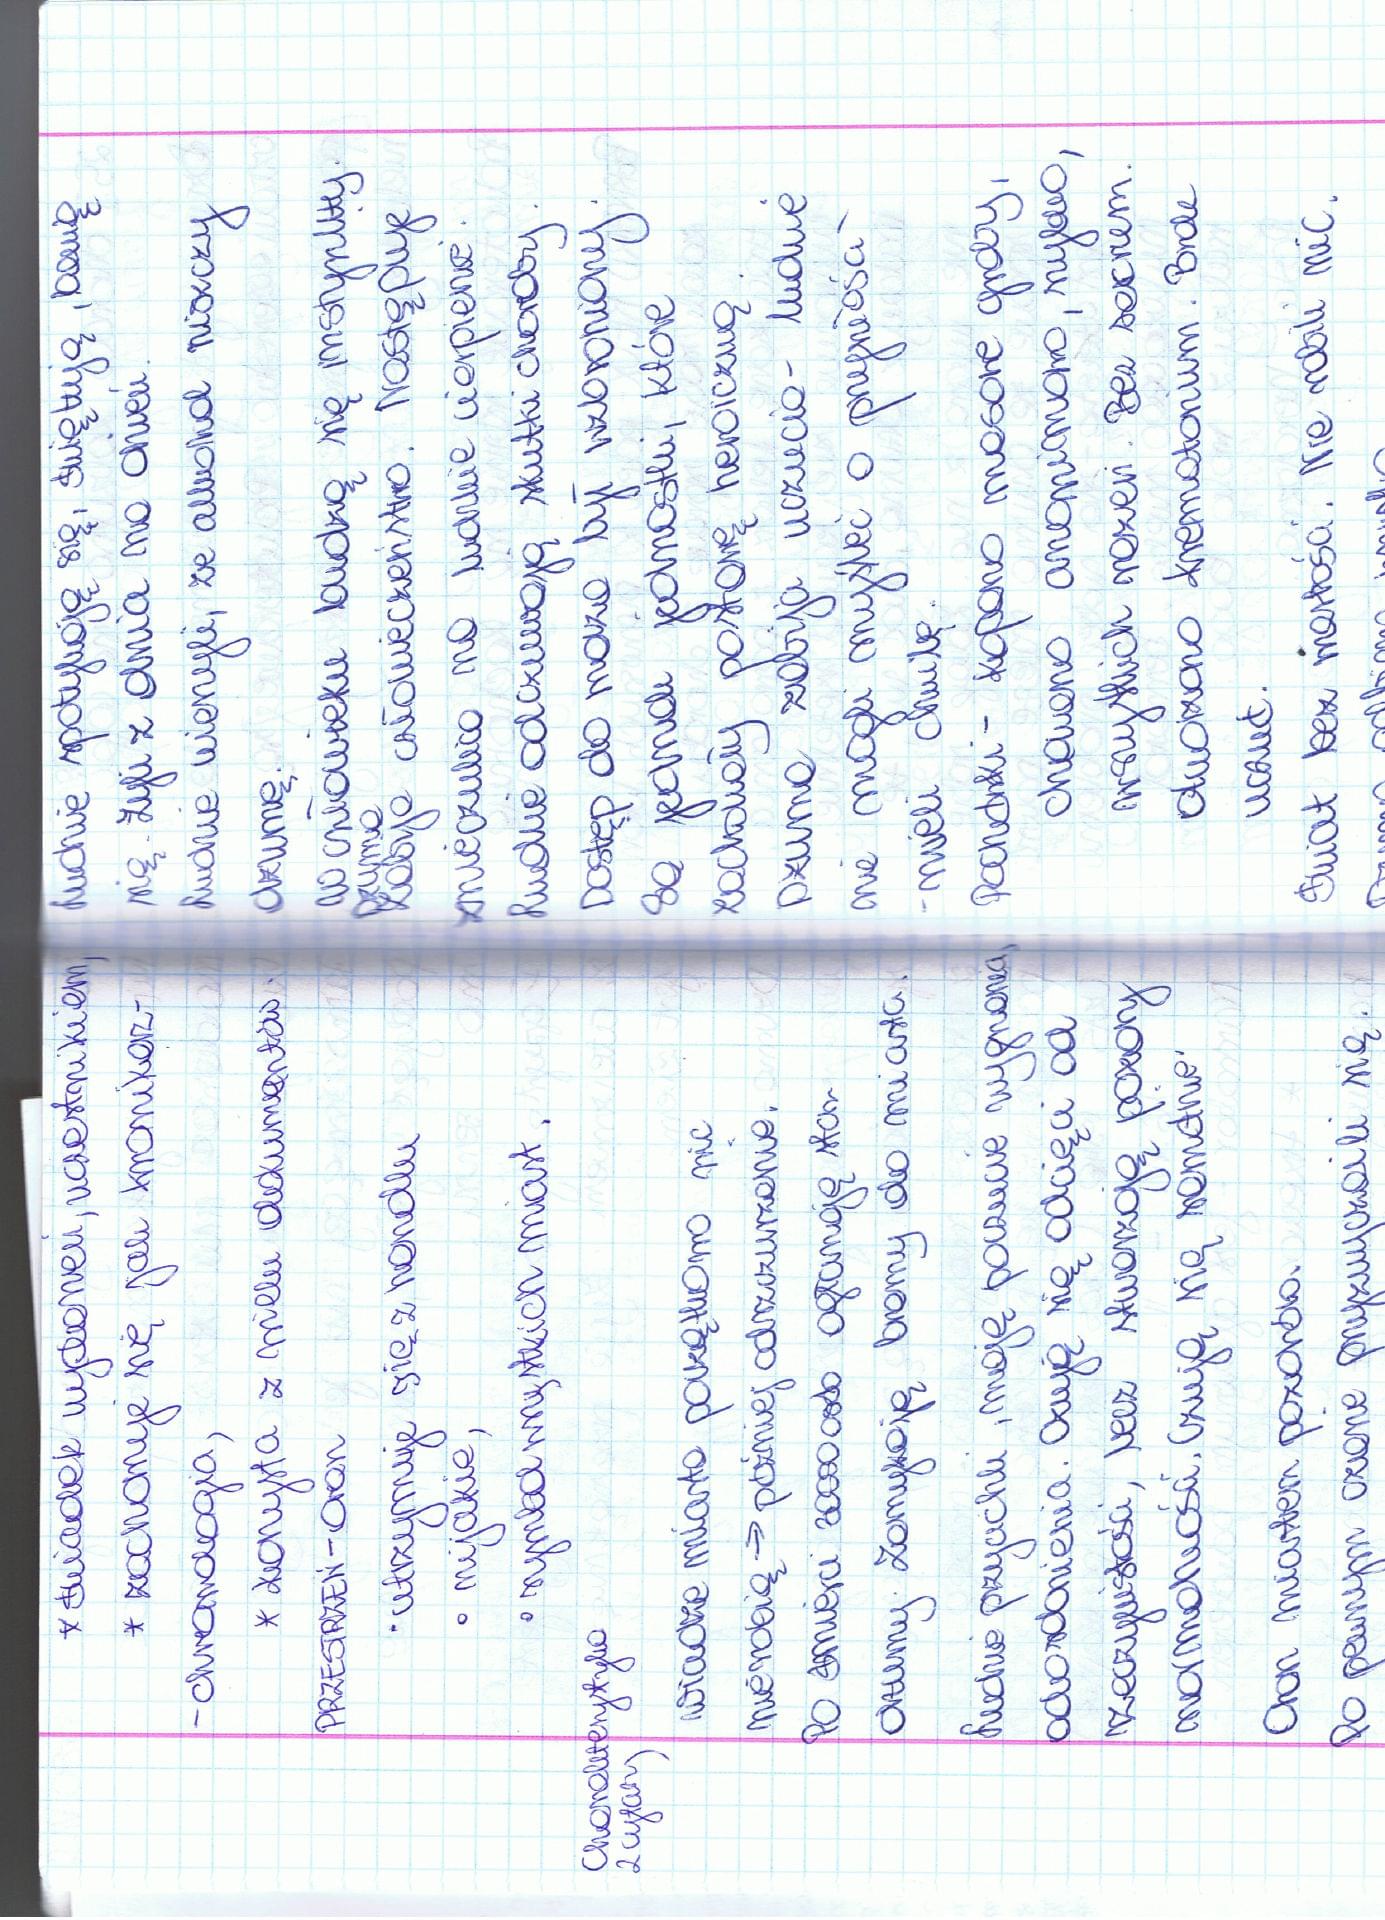 * świadek wydarzeń, uczestnikiem,
* zachowuje się jak kronikarz-
- chronologia,
* korzysta z wielu dokumentów.
PRZESTRZEŃ - Oran
• utrzymuje się z handlu
• nijakie,
• symbol wszystkich miast,
Charakterystyka
z cytan)
władze miasta początkowo nic
nie robią → później odszczurzanie.
Po śmierci osób ogłaszają stan
dżumy. Zamykają bramy do miasta.
Ludzie przycichli, mają poczucie wygnania,
odosobnienia. Czują się odcięci od
rzeczywistości, lecz stwarzają pozory
normalności, czują się samotnie.
Oran miastem pozorów.
Po pewnym czasie przyzwyczaili się.
Ludzie spotykają się, świętują, bawią
się. Żyli z dnia na dzień.
Ludzie wierzyli, że alkohol niszczy
dżumę.
W człowieku budzą się instynkty.
Dżuma
zabija człowieczeństwo. Następuje
znieczulica na ludzkie cierpienie.
Ludzie odczuwają skutki choroby.
Dostęp do morza był wzbroniony.
Są jednak jednostki, które
zachowały postawę heroiczną.
Dżuma zabija uczucia - ludzie
nie mogli myśleć o przyszłości -
- mieli chwilę.
Pochówki - kopano masowe groby,
chowano anonimowo, szybko,
wszystkich razem. Bez scenem.
otworzono krematorium. Brak
uczuć.
Świat bez wartości. Nie robili nic,